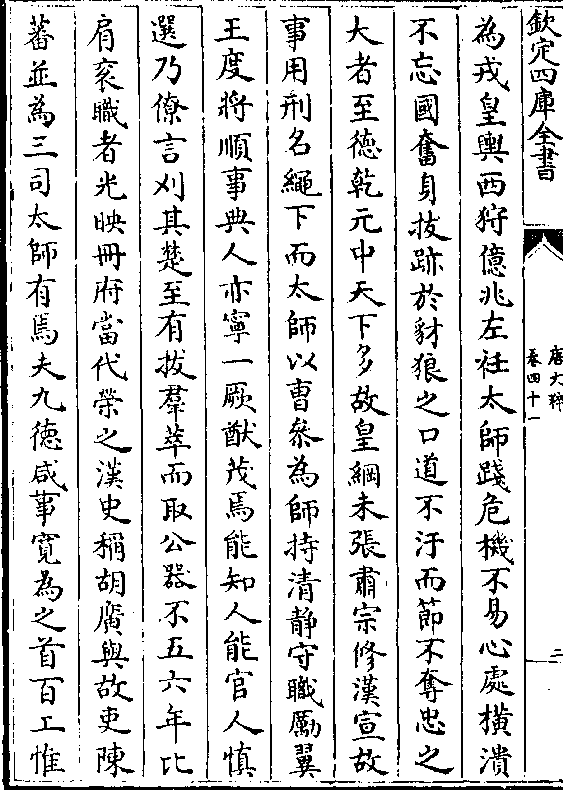 欽定四庫全書
唐文粹
卷四十一
二
為戎皇輿西狩億兆左衽太師踐危機不易心處橫潰
不忘國奮身拔跡於豺狼之口道不汙而節不奪忠之
大者至德乾元中天下多故皇綱未張肅宗修漢宣故
事用刑名繩下而太師以曹參為師持清静守職勵翼
王度將順事典人亦寧一厥猷茂焉能知人能官人慎
選乃僚言刈其楚至有拔羣萃而取公器不五六年比
肩衮職者光映冊府當代榮之漢史稱胡廣與故吏陳
蕃並為三司太師有焉夫九德咸事寛為之首百工惟